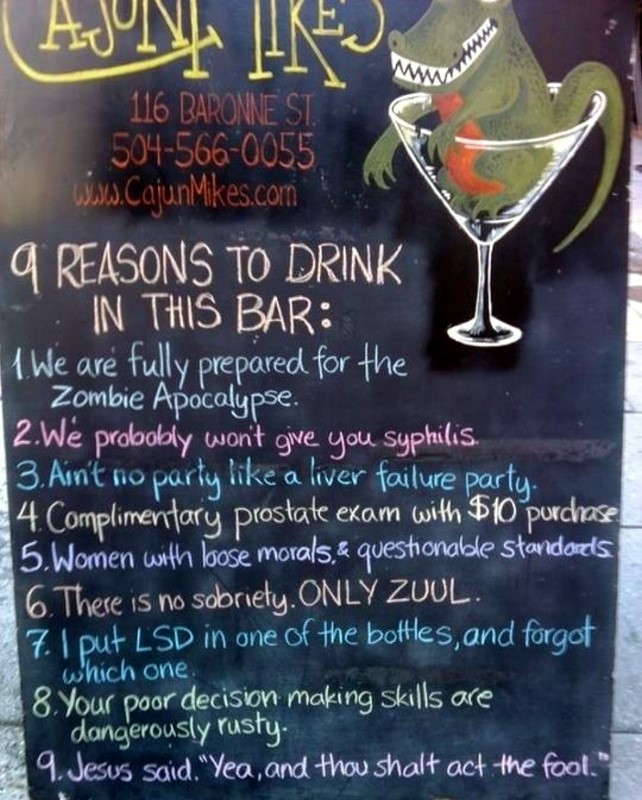 CAJUN MIKE'S
116 BARONNE ST.
504-566-0055
www.CajunMikes.com
9 REASONS TO DRINK
IN THIS BAR:
1. We are fully prepared for the
Zombie Apocalypse.
2. We probobly won't give you syphilis.
3. Ain't no party like a liver failure party.
4. Complimentary prostate exam with $10 purchase
5. Women with loose morals, & questionable standards.
6. There is no sobriety. ONLY ZUUL.
7. I put LSD in one of the bottles, and forgot
which one.
8. Your poor decision making skills are
dangerously rusty.
9. Jesus said. "Yea, and thou shalt act the fool."